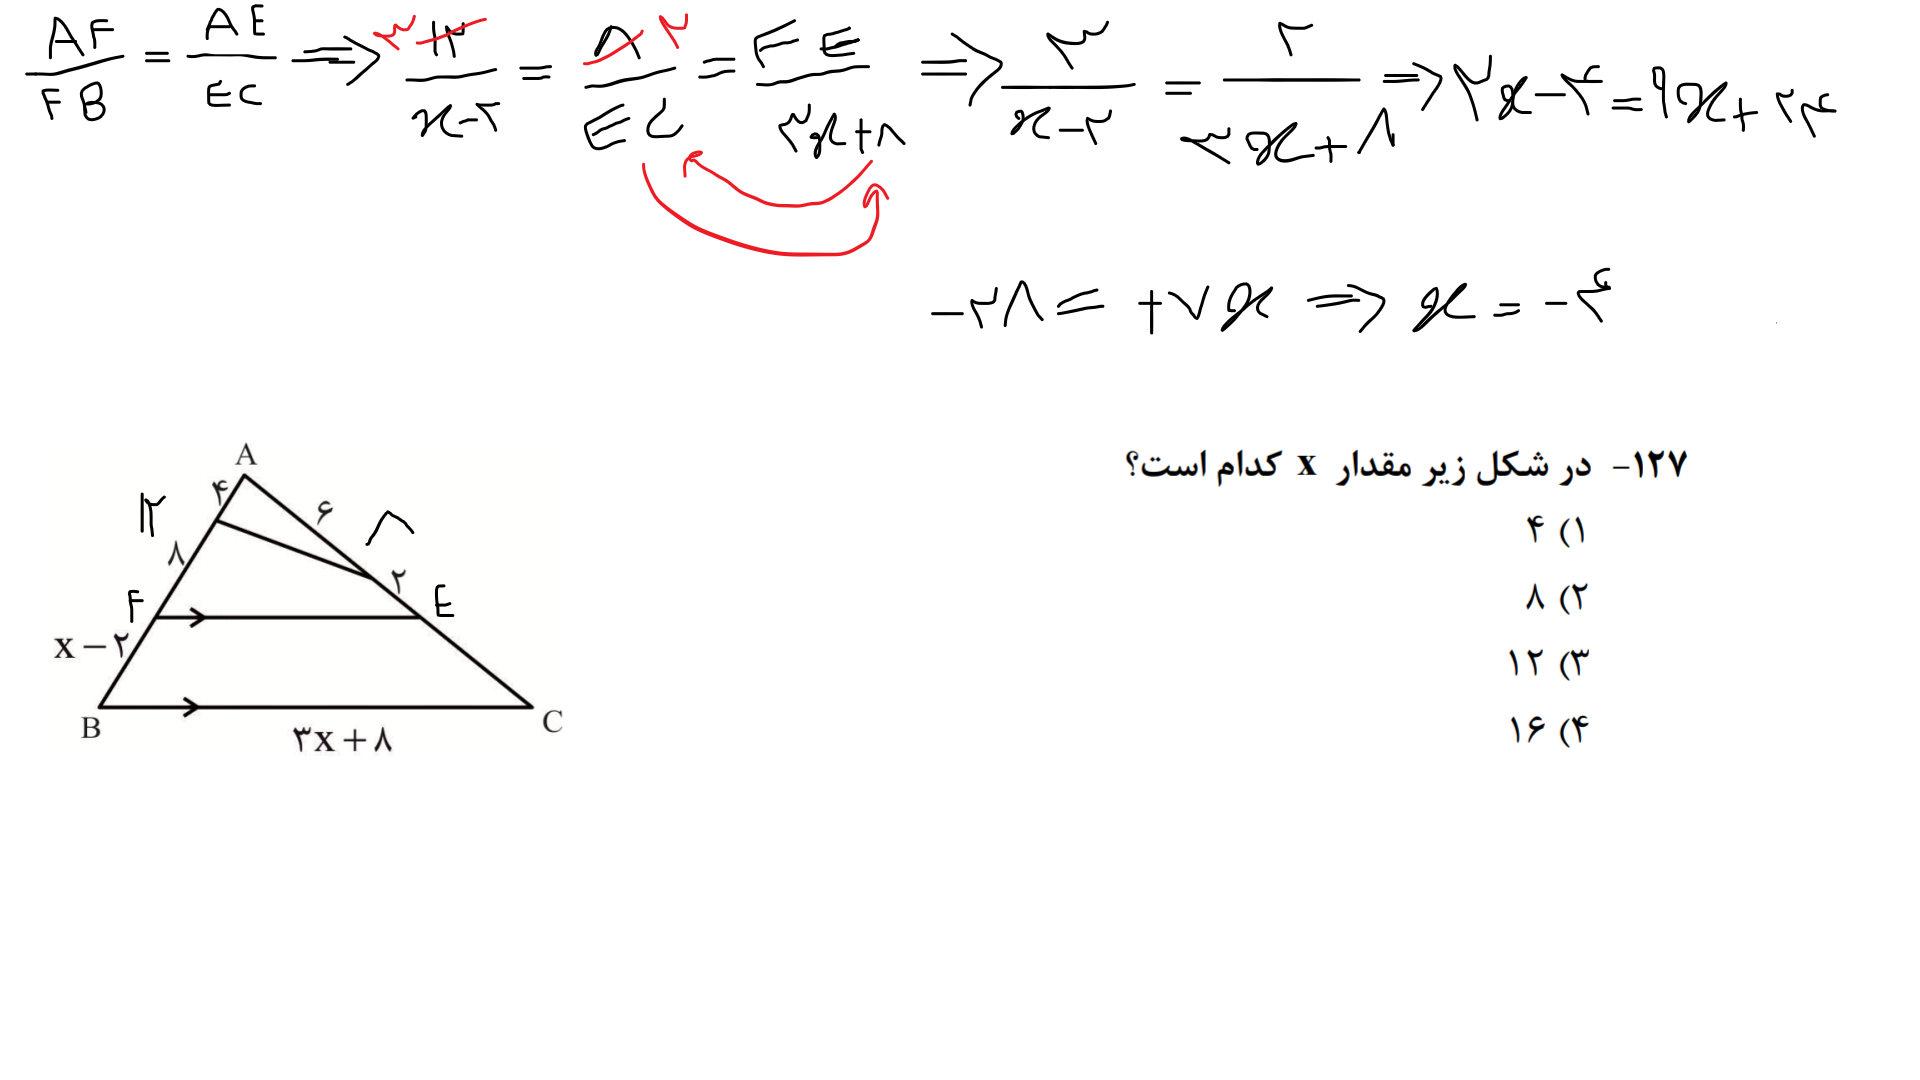 AF/FB = AE/EC ⇒ ۳ ۱۲/x-۲ = ۸ ۲/EC = FE/۳x+۸ ⇒ ۳/x-۲ = ۲/۳x+۸ ⇒ ۲x-۴=۹x+۲۴
-۲۸ = +۷x ⇒ x = -۴
۱۲۷- در شکل زیر مقدار x کدام است؟
۱) ۴
۲) ۸
۳) ۱۲
۴) ۱۶
A
۴
۶
۱۲
۸
۸
۲
F
E
x-۲
B
C
۳x+۸